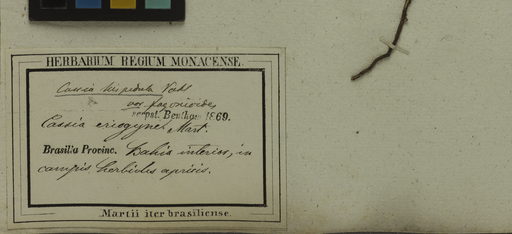 HERBARIUM REGIUM MONACENSE.
Cassia hispidula Vahl
var. fagonioides
recpt. Benth. 1869.
Cassia eriogyne Mart.
Brasilia Provinc. Bahia interior, in
campis herbidis apricis.
Martii iter brasiliense.